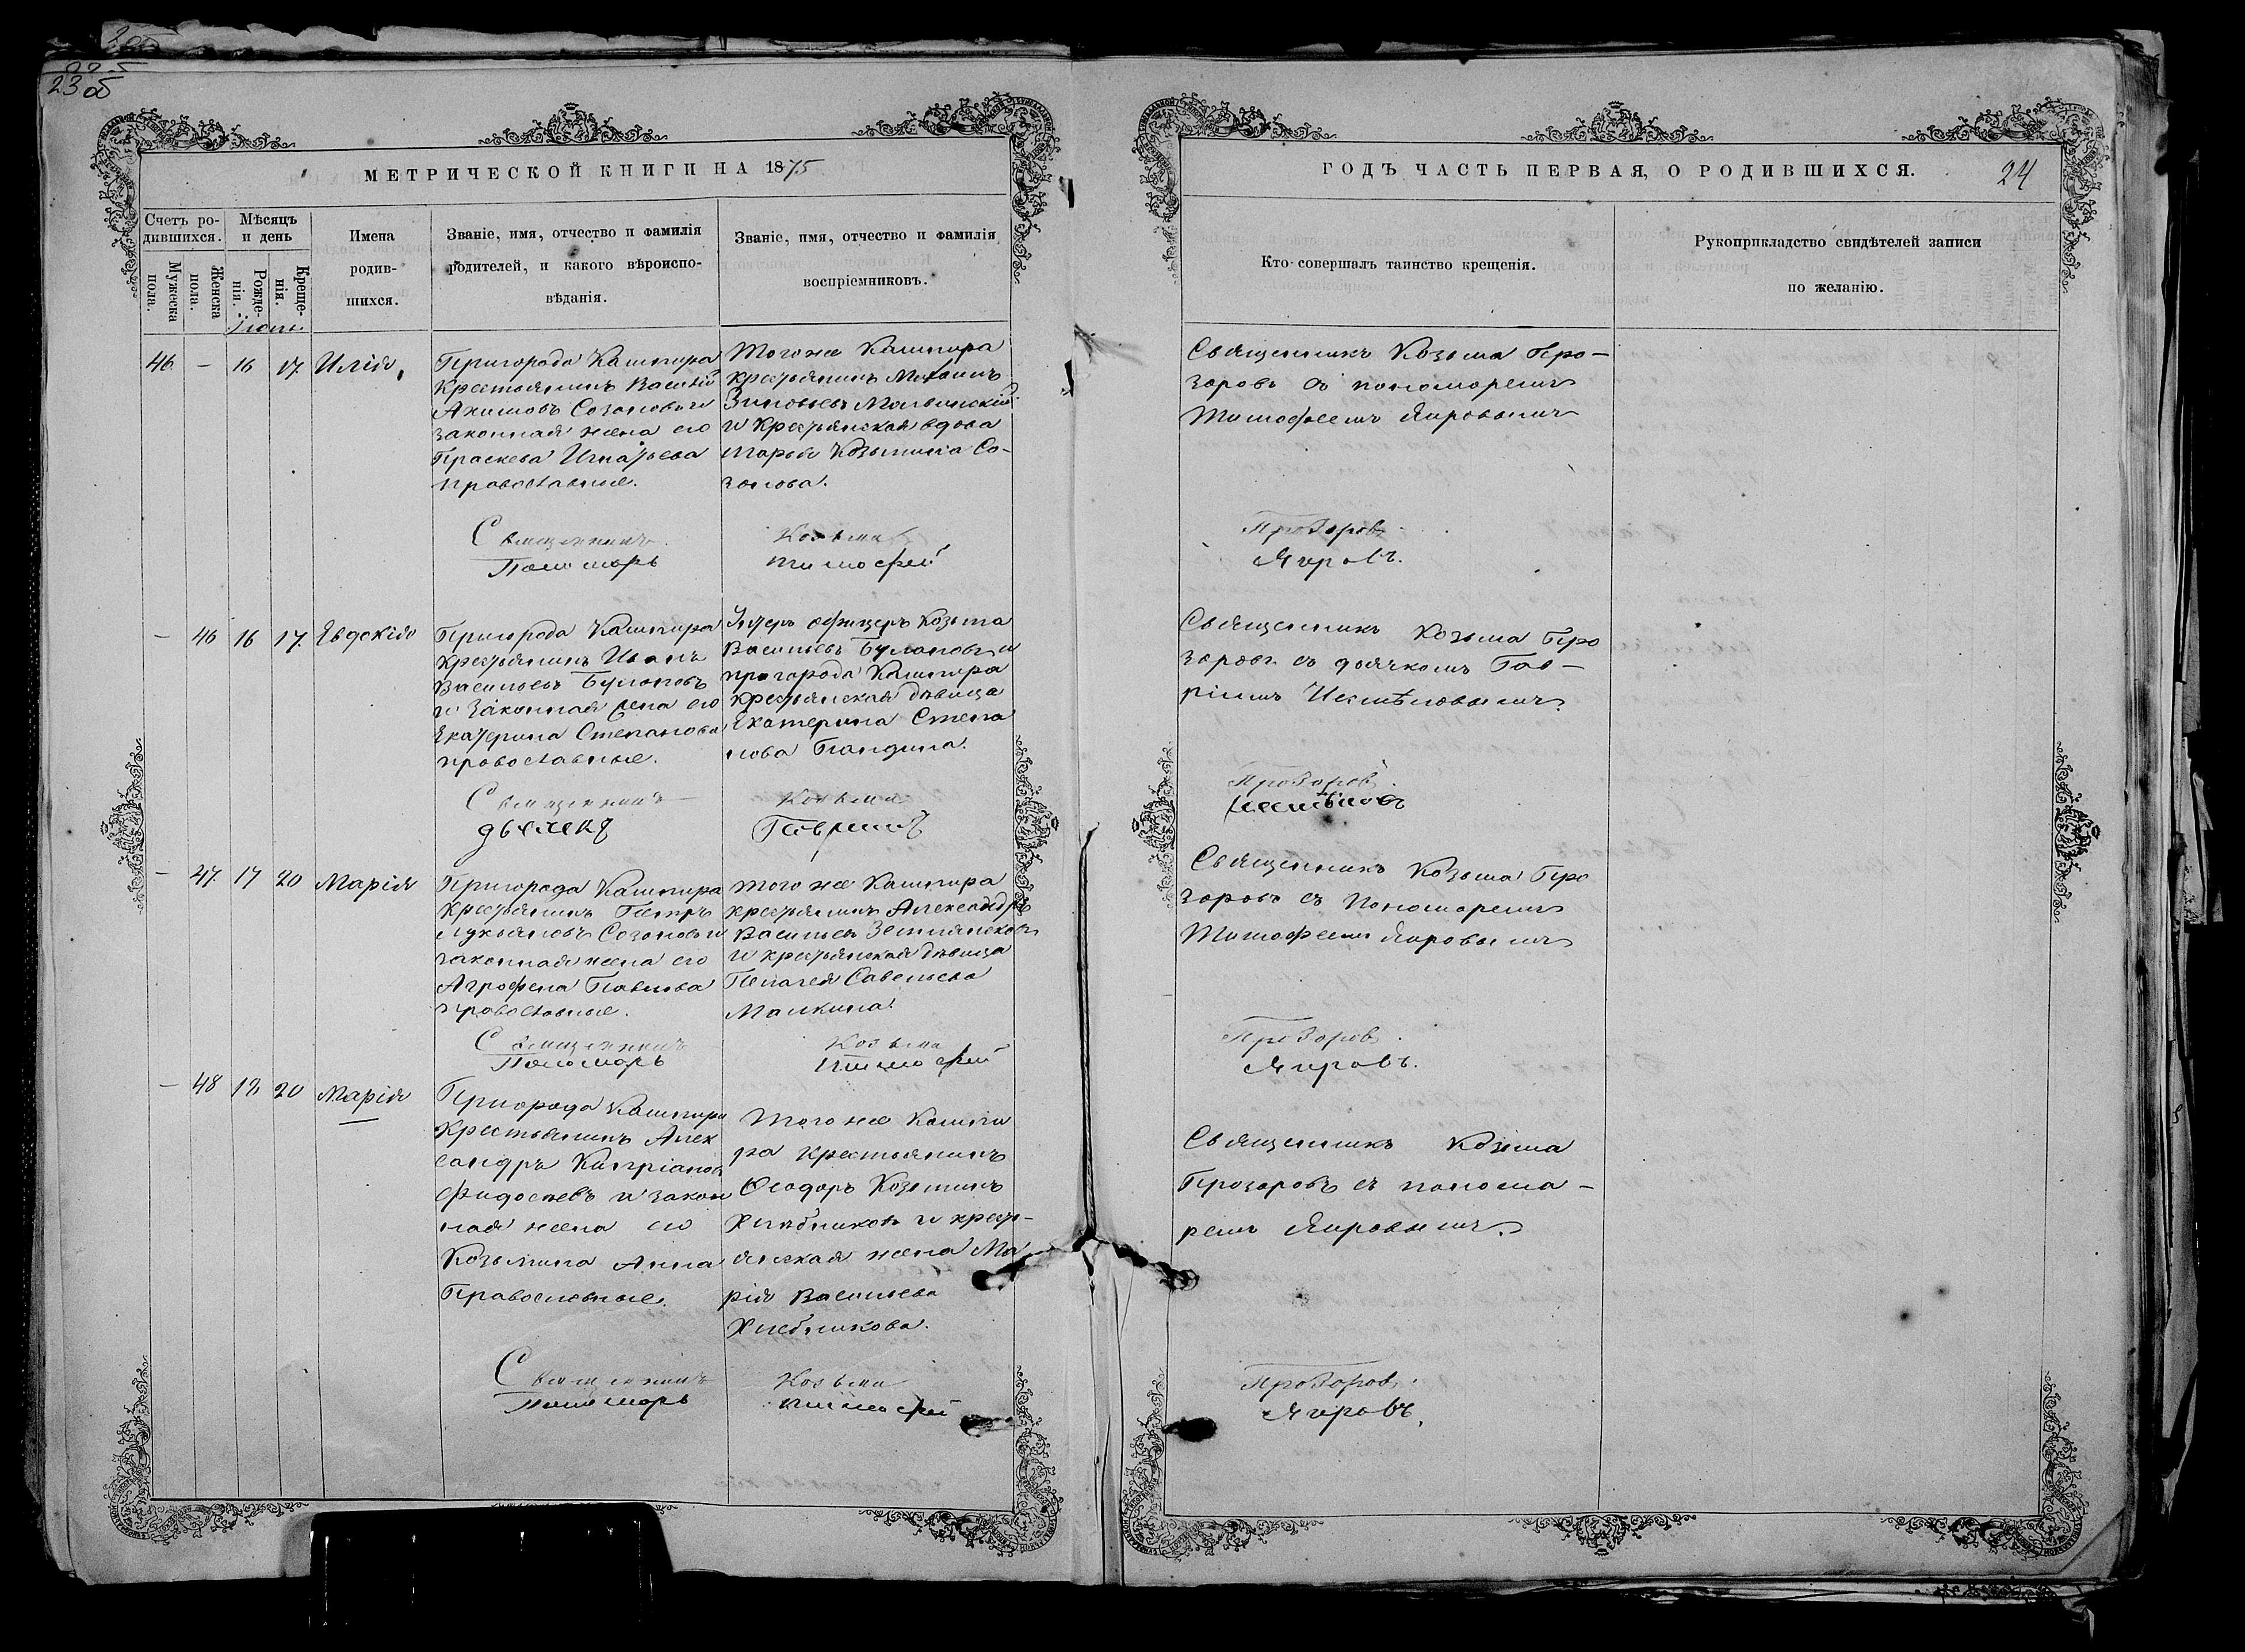 23 об
МЕТРИЧЕСКОЙ КНИГИ НА 1875
Счетъ ро-
дившихся.
Мужеска
пола.
Женска
пола.
Мѣсяцъ
и день
Рожде-
нія.
Креще-
нія.
Имена
родив-
шихся.
Званіе, имя, отчество и фамилія
родителей, и какого вѣроиспо-
вѣданія.
Званіе, имя, отчество и фамилія
воспріемниковъ.
46 — 16 17 Илія
Пригорода Кашпира
Крестьянинъ Василій
Акимовъ Созоновъ и
законная жена его
Праскева Игнатьева
православные.
Того же Кашпира
крестьянинъ Михаилъ
Зиновьевъ
и Крестьянская вдова
Марья Козьмина Со-
зонова.
Священникъ Козьма
Пономарь Тимофей
— 46 16 17. Евдокія
Пригорода Кашпира
крестьянинъ Иванъ
Васильевъ Булановъ
и законная жена его
Екатерина Степанова
православные.
Унтеръ офицеръ Козьма
Васильевъ Булановъ и
пригорода Кашпира
крестьянская дѣвица
Екатерина Степа
нова
Священникъ Козьма
дьячекъ Гавріилъ
— 47 17 20 Марія
Пригорода Кашпира
Крестьянинъ Петръ
Лукьяновъ Созоновъ и
законная жена его
Агрофена Павлова
православные.
Того же Кашпира
крестьянинъ Александръ
Васильевъ Землянсковъ
и крестьянская дѣвица
Пелагея Савельева
Малкина.
Священникъ Козьма
Пономарь Тимофей
— 48 18 20 Марія
Пригорода Кашпира
Крестьянинъ Алек
сандръ Кипріановъ
Фидосѣевъ и закон
ная жена его
Козьмина Анна
Православные.
Того же Кашпи
ра крестьянинъ
Ѳеодоръ Козьминъ
Хлѣбниковъ и крест-
янская жена Ма
рія Васильева
Хлебникова.
Священникъ Козьма
Пономарь Тимофей
ГОДЪ ЧАСТЬ ПЕРВАЯ, О РОДИВШИХСЯ.
24
Кто совершалъ таинство крещенія.
Рукоприкладство свидѣтелей записи
по желанію.
Священникъ Козьма Про-
зоровъ съ пономоремъ
Тимофеемъ Яировымъ
Прозоровъ.
Яировъ.
Священникъ Козьма Про
зоровъ съ дьячкомъ Гав-
ріиломъ
Прозоровъ.
Священникъ Козьма Про
зоровъ съ Пономоремъ
Тимофеемъ Яировымъ
Прозоровъ.
Яировъ.
Священникъ Козьма
Прозоровъ съ понома-
ремъ Яировымъ.
Прозоровъ.
Яировъ.